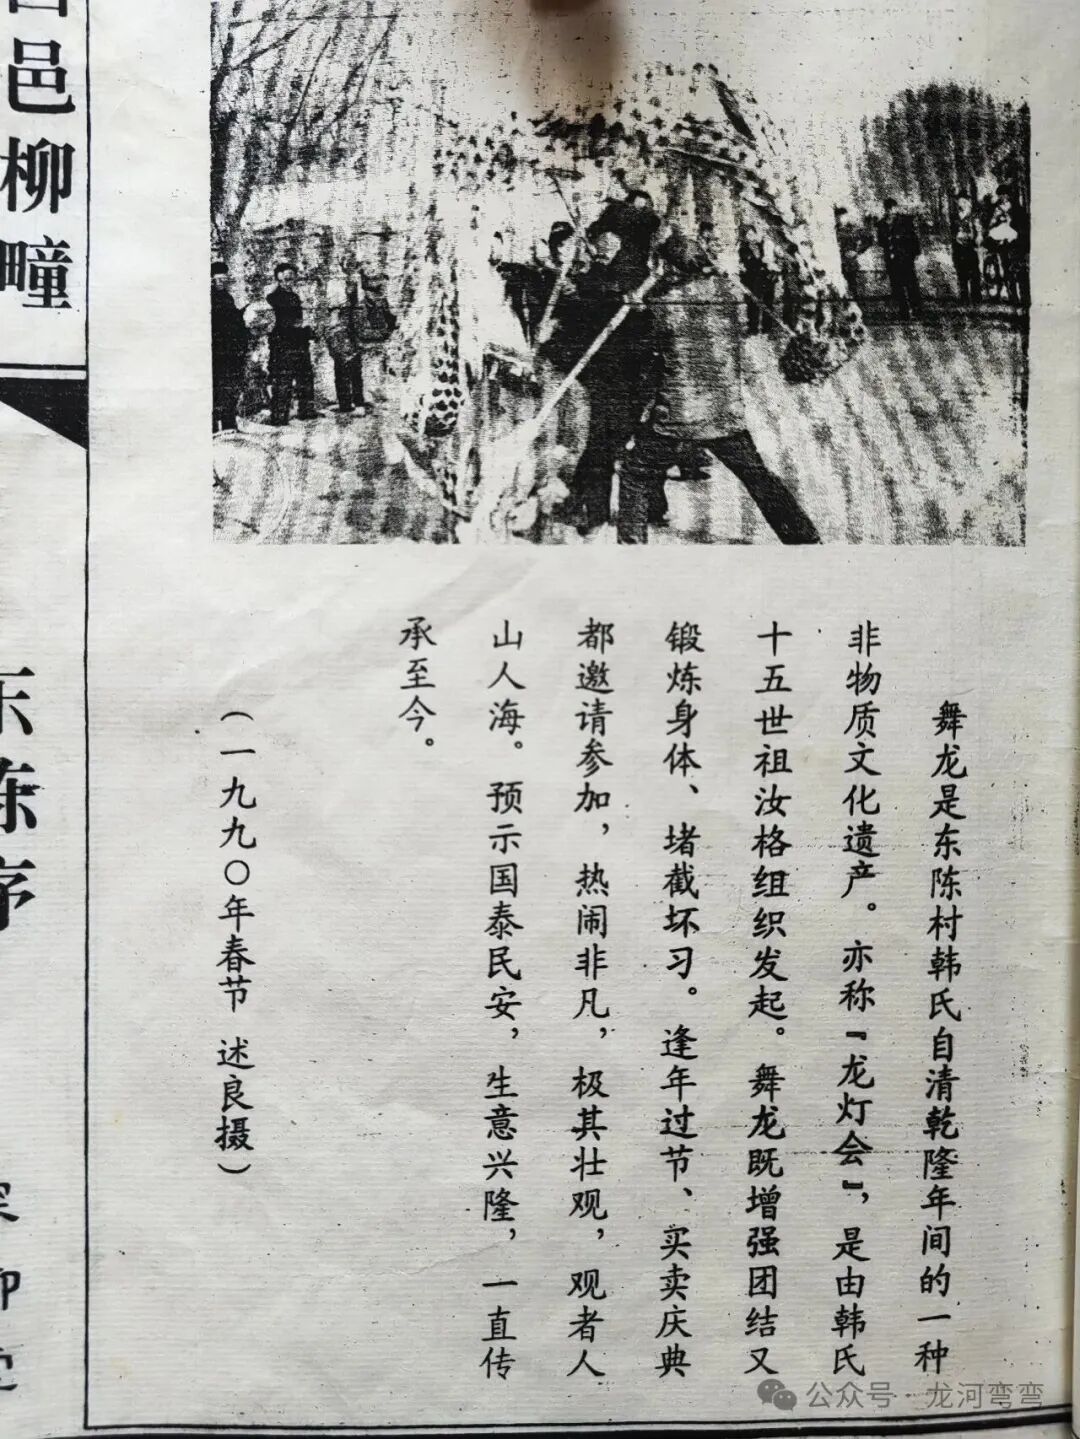 舞龙是东陈村韩氏自清乾隆年间的一种
非物质文化遗产。亦称『龙灯会』，是由韩氏
十五世祖汝格组织发起。舞龙既增强团结又
锻炼身体、堵截坏习。逢年过节、买卖庆典
都邀请参加，热闹非凡，极其壮观，观者人
山人海。预示国泰民安，生意兴隆，一直传
承至今。
（一九九〇年春节 述良摄）
邑柳疃
东陈序
公众号·龙河弯弯